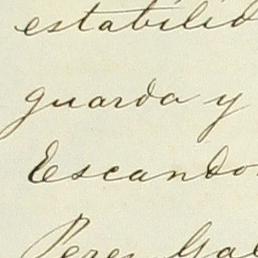 estabilid
guarda y
Escando
Peres Gal